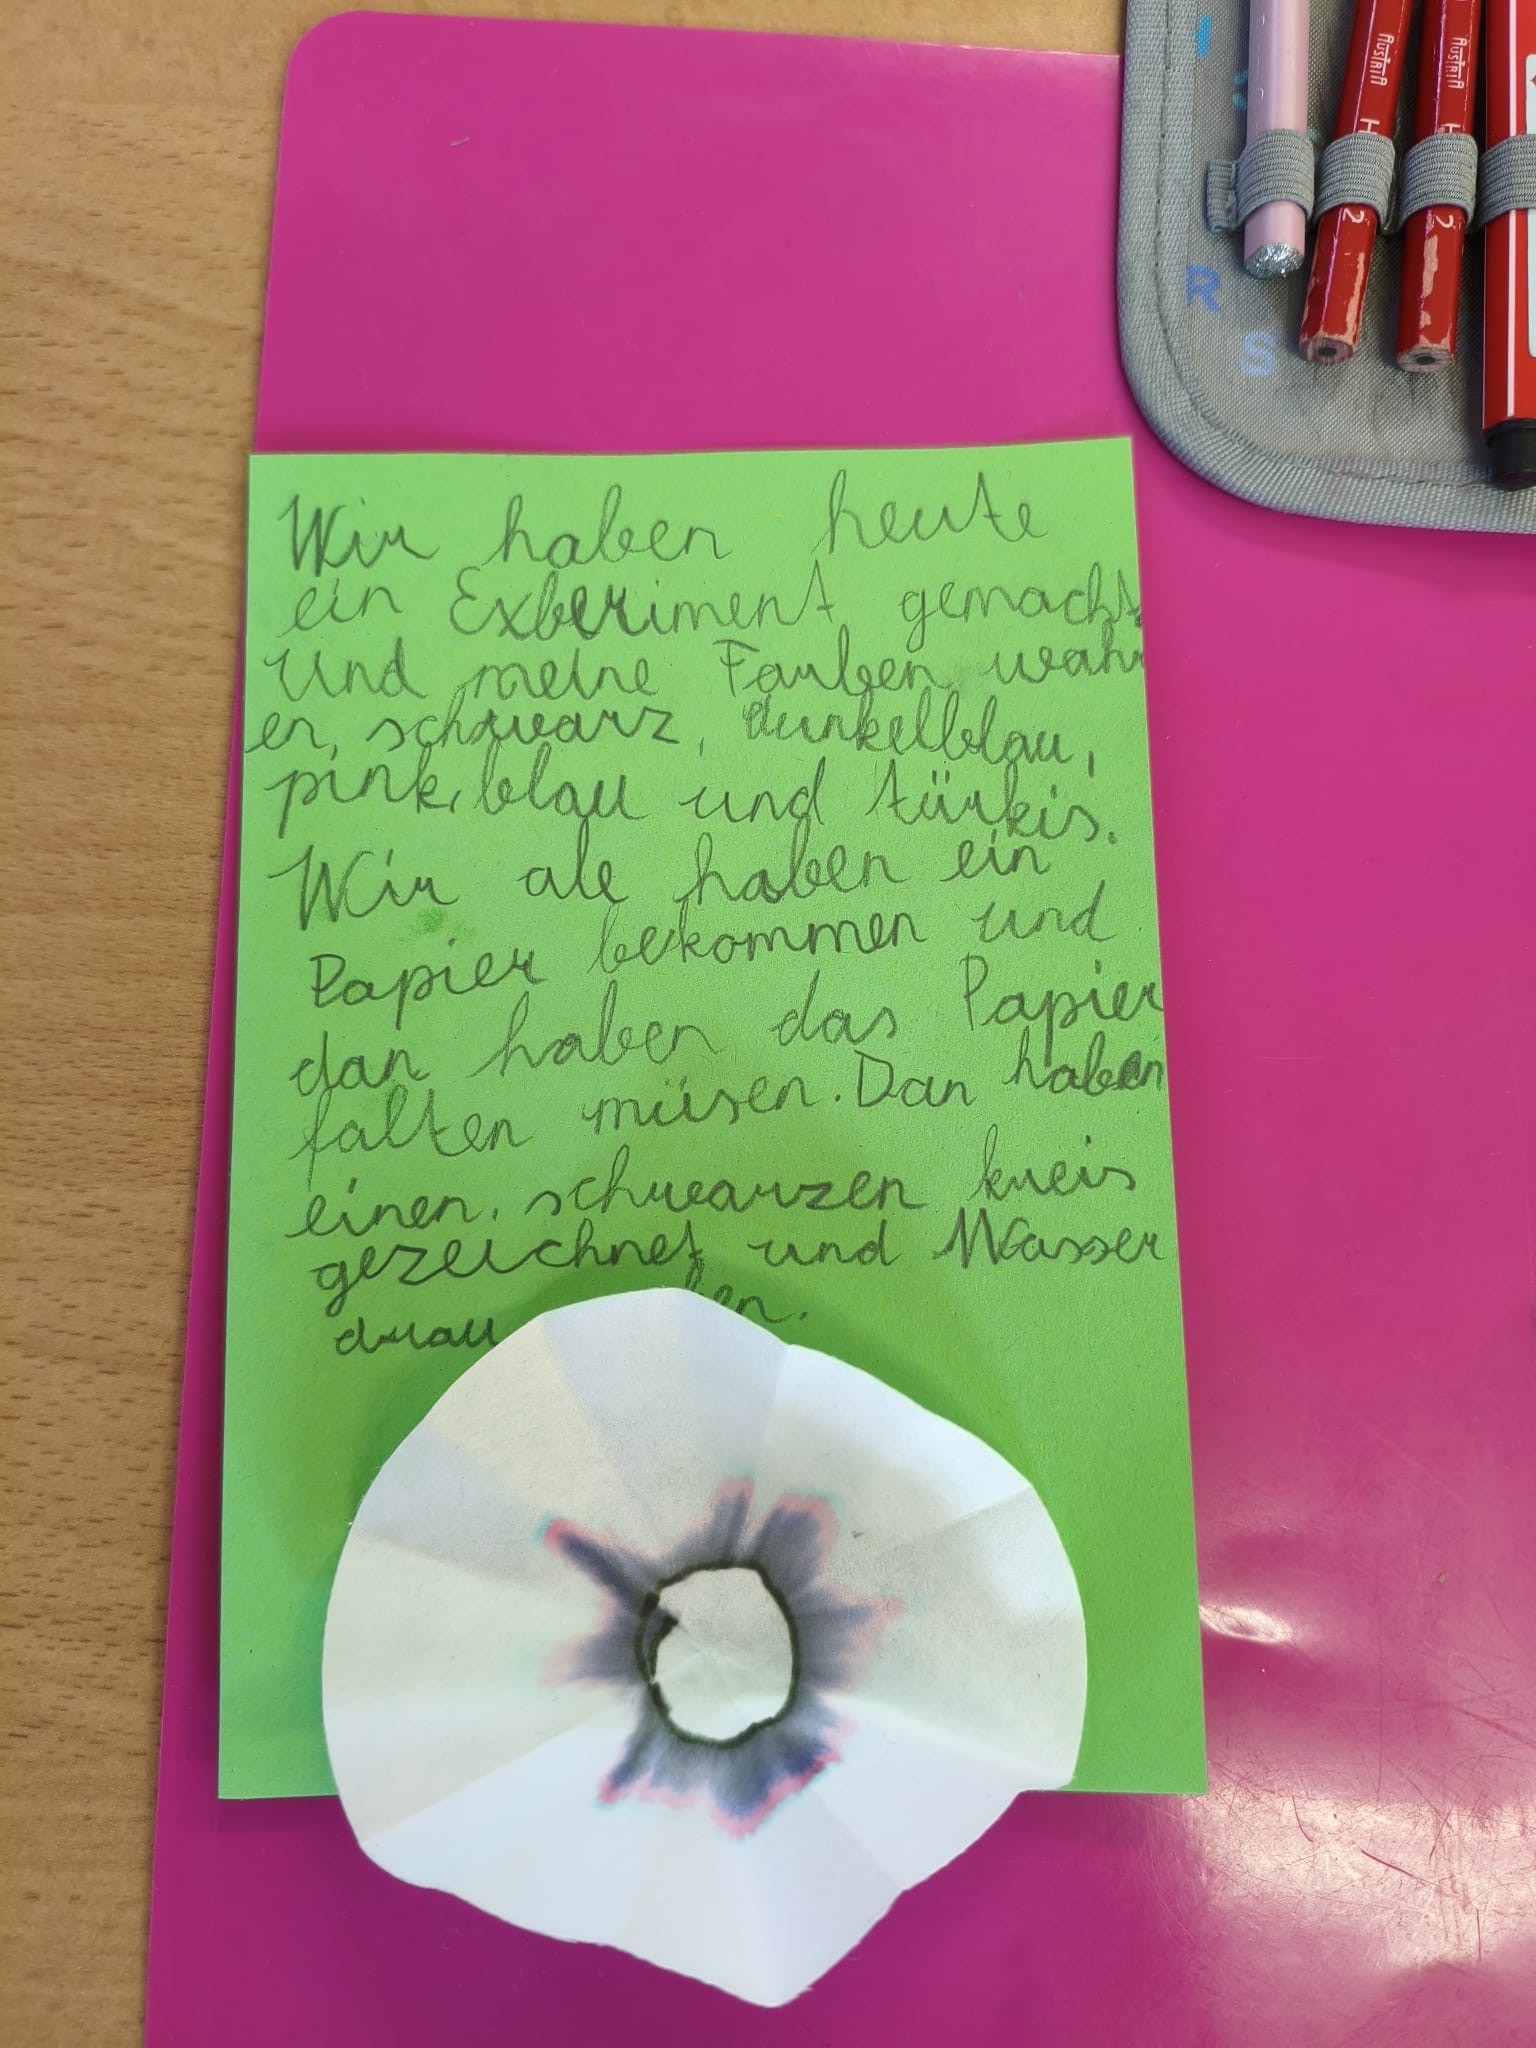 Wir haben heute
ein Experiment gemacht
Und meine Farben wahr
en, schwarz, dunkelblau,
pink, blau und türkis.
Wir ale haben ein
Papier bekommen und
dan haben das Papier
falten müsen. Dan haben
einen, schwarzen kreis
gezeichnet und Wasser
AUSTRIA
H
2
AUSTRIA
H
2
R
S